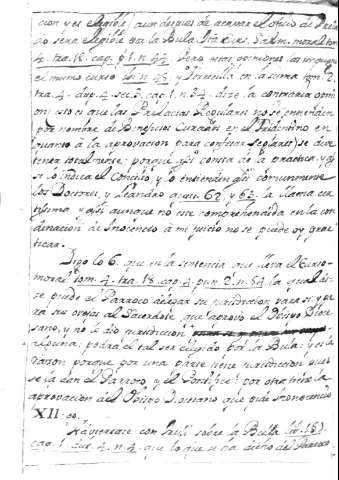 cion y es elegible, aun despues de acavar el oficio de Prela
do sera elegible por la Bula. Ita Curs. Salm. moral. tom.
4. tra. 18. cap. 4. n. 44. Pero estas opiniones las impugna
el mismo curso n. 45 y Torrecilla en la suma tom. 2.
tra. 4. disp. 4. sec. 3. cap. 1. n. 34. dize la contraria opini
on: esto es que las Prelacias Regulares no se entienden
por nombre de Beneficios Curados en el Tridentino en
quanto à la aprovacion para confesar seglares se deve
tener totalmente: porque assi consta de la practica, y assi
se lo indica el Concilio, y lo entienden assi comunmente
los Doctores, y Leandro quest. 62. y 63. la llama cer
tissima y assi aunque no este comprehendida en la con
denacion de Inocencio à mi juicio no se puede oy prac
ticar.
Digo lo 6. que en la sentencia que lleva el Curso
moral tom. 4. tra. 18. cap. 4. pun. 2. n. 54. la qual di
se puede el Parroco delegar su jurisdiccion para si y pa
ra sus ovejas al Sacerdote que aprovò el Obispo Dioce
sano, y no le dio jurisdiccion
alguna: podrà el tal ser elegido por la Bula: y es la
razon porque por una parte tiene jurisdiccion pues
se la dan el Parroco, y el Pontifice: por otra tiene la
aprovacion del Obispo Diocesano que pide Inocencio
XII. &c.
Adviertase con sobre la Bulla
cap. 1. n. 4. que lo que se ha dicho del Parroco